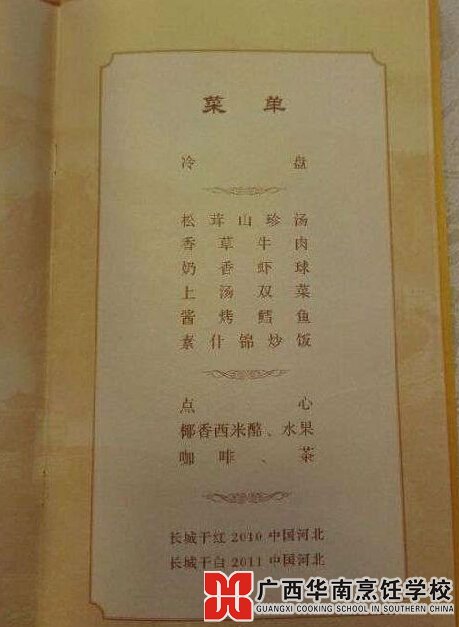 菜单
冷盘
松茸山珍汤
香草牛肉
奶香虾球
上汤双菜
酱烤鳕鱼
素什锦炒饭
点心
椰香西米酪、水果
咖啡、茶
长城干红2010 中国河北
长城干白2011 中国河北
广西华南烹饪学校
GUANGXI COOKING SCHOOL IN SOUTHERN CHINA